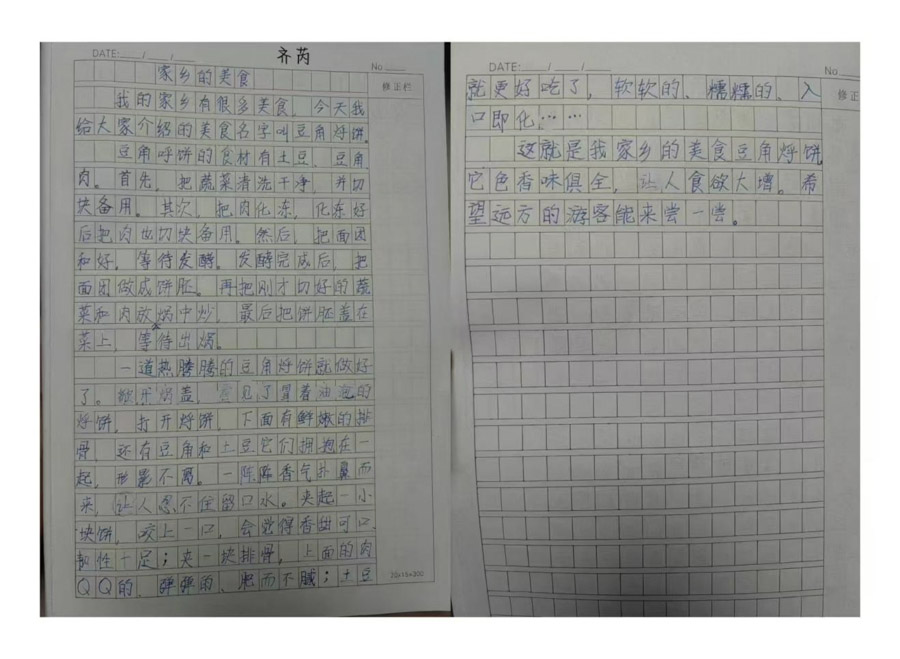 DATE: / /
齐芮
No
修正栏
家乡的美食
我的家乡有很多美食，今天我
给大家介绍的美食名字叫豆角焖饼。
豆角焖饼的食材有土豆、豆角、
肉。首先，把蔬菜清洗干净，并切
块备用。其次，把肉化冻，化冻好
后把肉也切块备用。然后，把面团
和好，等待发酵。发酵完成后，把
面团做成饼胚。再把刚才切好的蔬
菜和肉放锅中炒，最后把饼胚盖在
菜上，等待出锅。
一道热腾腾的豆角焖饼就做好
了。掀开锅盖，看见了冒着油泡的
焖饼，打开焖饼，下面有鲜嫩的排
骨，还有豆角和土豆它们拥抱在一
起，形影不离。一阵阵香气扑鼻而
来，让人忍不住留口水。夹起一小
块饼，咬上一口，会觉得香甜可口，
韧性十足；夹一块排骨，上面的肉
QQ的、弹弹的、肥而不腻；土豆
20x15=300
DATE: / /
No
修正
就更好吃了，软软的、糯糯的、入
口即化……
这就是我家乡的美食豆角焖饼，
它色香味俱全，让人食欲大增。希
望远方的游客能来尝一尝。